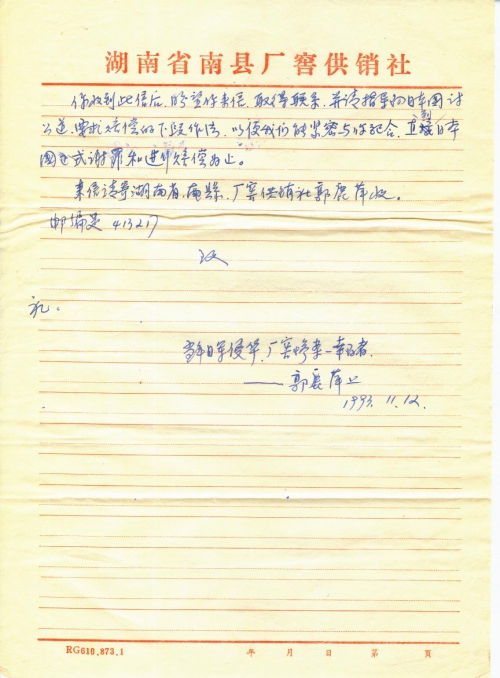 湖南省南县厂窖供销社
你收到此信后,盼望你来信,取得联系,并请指导向日本国讨
公道,要求赔偿的下段作法,以便我们能紧密与你配合,直到日本
国正式谢罪和进行赔偿为止。
来信请寄湖南省,南县,厂窖供销社郭鹿萍收。
邮编是 413217
致
礼。
当年日军侵华,厂窖惨案一幸存者
——郭鹿萍上
1993.11.12.
RG610.873.1 年 月 日 第 页